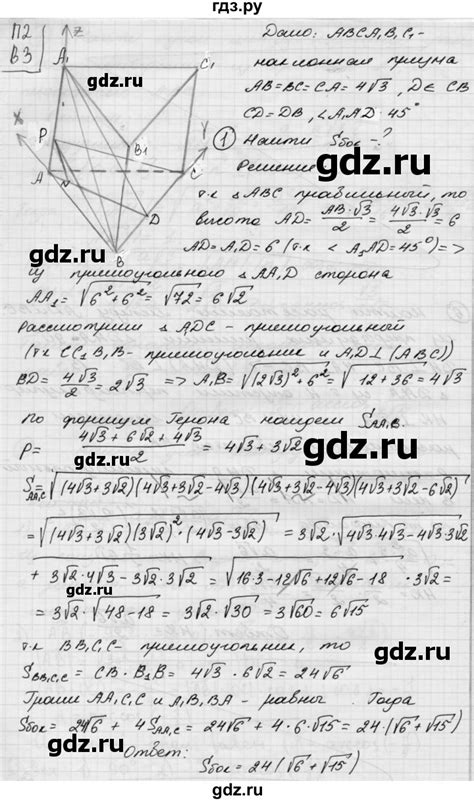 гдз.ру
П2
В3
Z
Дано: ABCA₁B₁C₁ -
наклонная призма
AB=BC=CA=4√3, D∈CB
CD=DB, ∠A₁AD=45°
① Найти Sбок-?
Решение
A₁
C₁
X
P
B₁
Y
A
N
C
D
B
т.к △ABC правильный, то
высота AD= AB·√3/2 = 4√3·√3/2 = 6
AD=A₁D=6 (т.к ∠A₁AD=45°)=>
из прямоугольного △AA₁D сторона
AA₁=√(6²+6²)=√72=6√2
Рассмотрим △ADC - прямоугольный
(т.к CC₁B₁B - прямоугольник и A₁D⊥(ABC))
BD= 4√3/2 = 2√3 => A₁B=√((2√3)²+6²)=√(12+36)=4√3
По формуле Герона найдем S AA₁C
P= (4√3+6√2+4√3)/2 = 4√3+3√2
S AA₁C =√((4√3+3√2)(4√3+3√2-4√3)(4√3+3√2-4√3)(4√3+3√2-6√2))
=√((4√3+3√2)(3√2)²·(4√3-3√2)) =3√2·√(4√3·4√3-4√3·3√2
+3√2·4√3-3√2·3√2) =√(16·3-12√6+12√6-18)·3√2=
=3√2·√(48-18) =3√2·√30=3√60=6√15
т.к BB₁C₁C - прямоугольник, то
S BB₁C₁C = CB·B₁B= 4√3·6√2=24√6
Грани AA₁C₁C и A₁B₁BA - равны. Тогда
Sбок=24√6+4S AA₁C=24√6+4·6·√15=24·(√6+√15)
Ответ:
Sбок=24(√6+√15)
gdz.ru
gdz.ru
gdz.ru
gdz.ru
gdz.ru
gdz.ru
gdz.ru
gdz.ru
гдз.ру